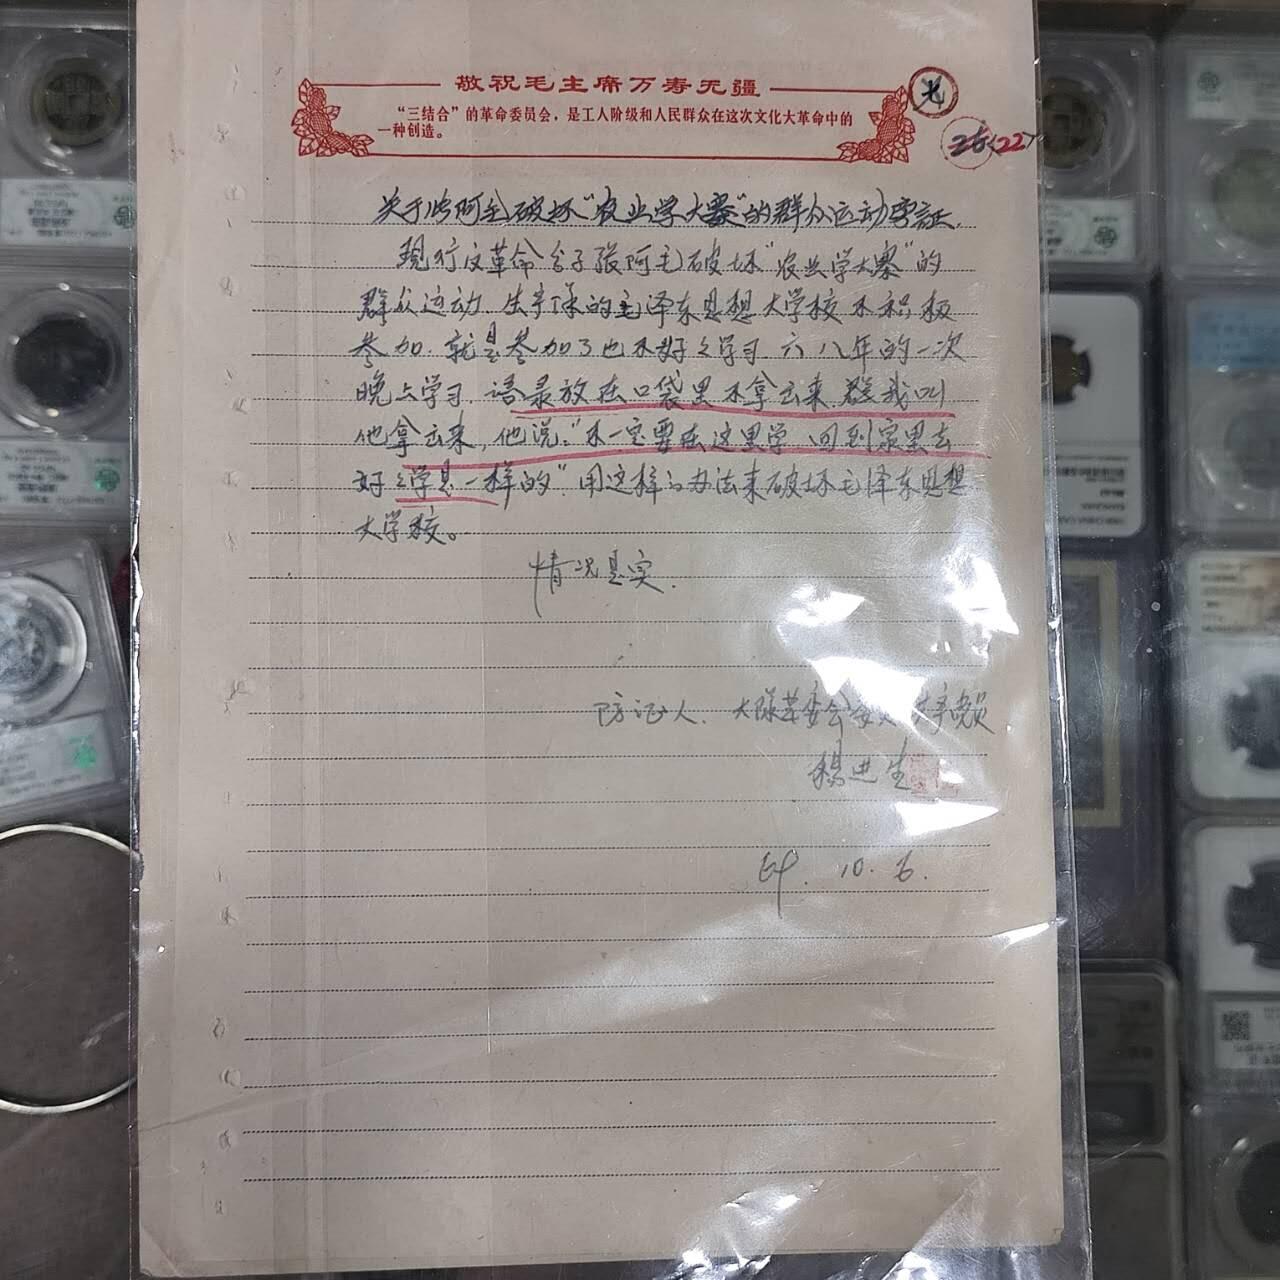 敬祝毛主席万寿无疆
“三结合”的革命委员会，是工人阶级和人民群众在这次文化大革命中的
一种创造。
26<22>
关于张阿毛破坏“农业学大寨”的群众运动旁证.
现行反革命分子张阿毛破坏“农业学大寨”的
群众运动.生产队的毛泽东思想大学校不积极
参加.就是参加了也不好々学习.六八年的一次
晚上学习.语录放在口袋里不拿出来.我叫
他拿出来,他说:“不一定要在这里学.回到家里去
好々学是一样的”.用这样的办法来破坏毛泽东思想
大学校。
情况是实.
防证人.大队革委会委员共产党员
杨进生
10.6.